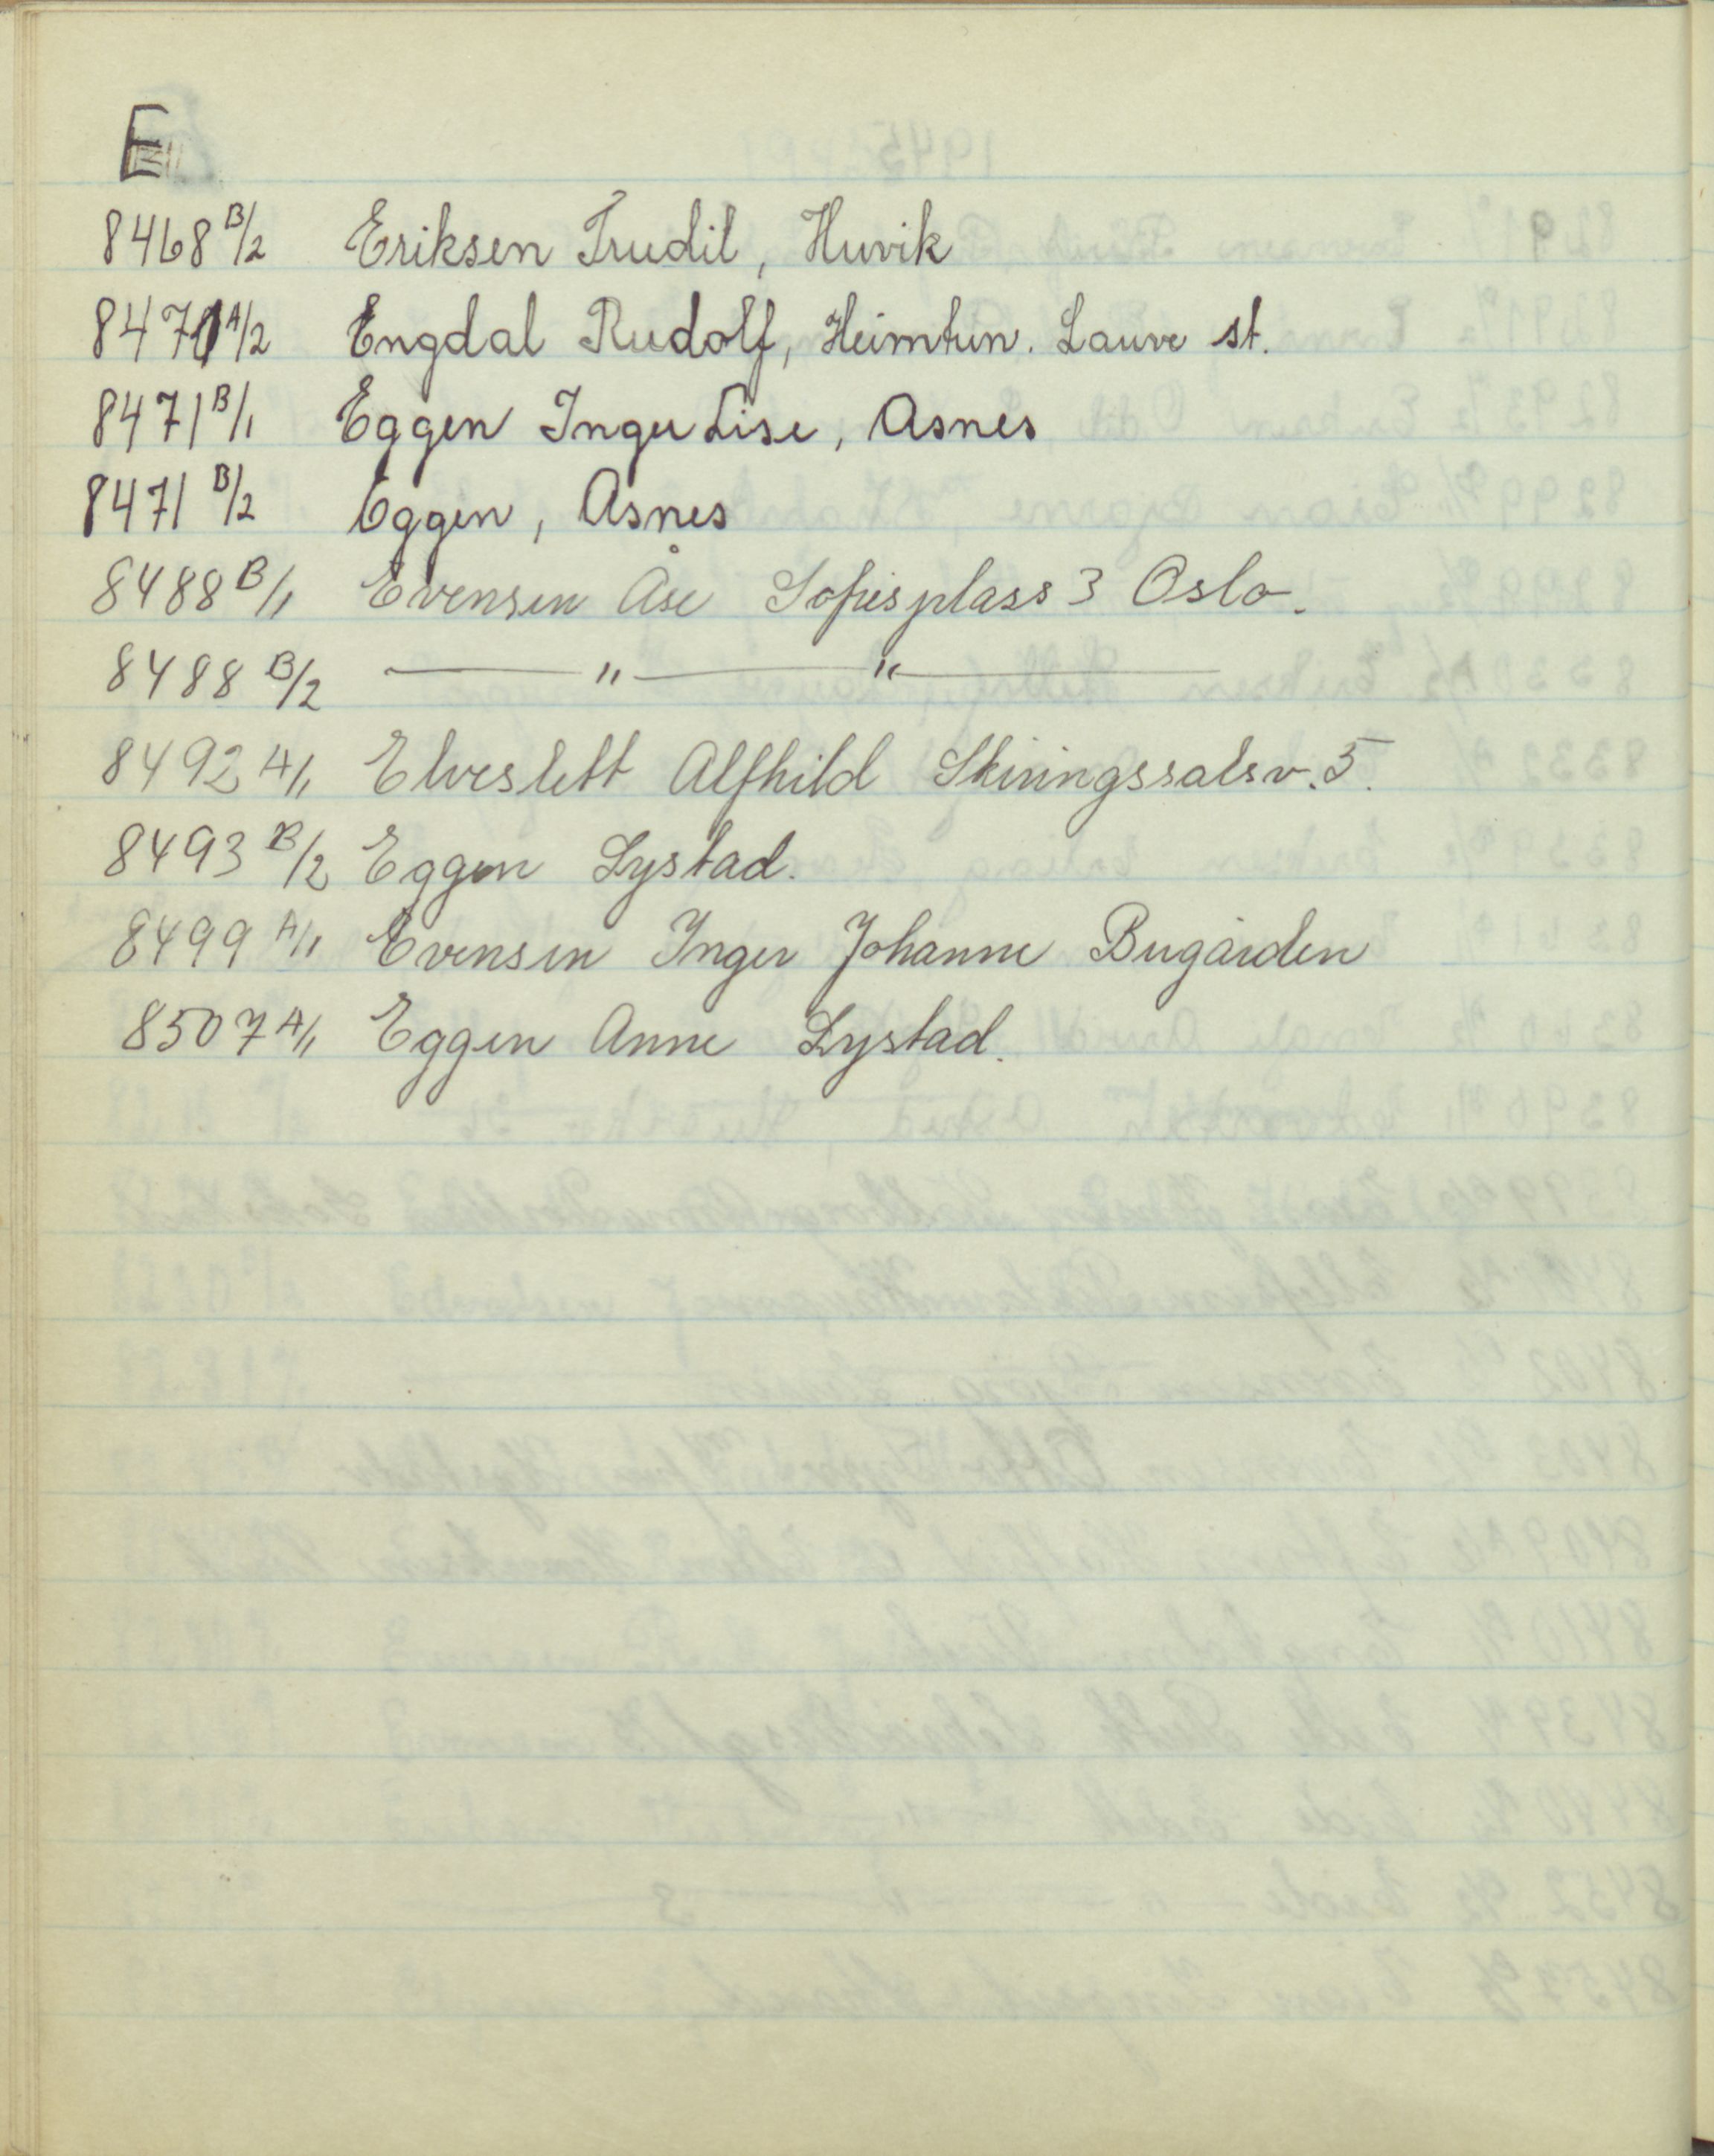 E
8468 B/2 Eriksen Trudil, Huvik
8471 A/2 Engdal Rudolf, Heimtun. Lauve st.
8471 B/1 Eggen Inger Lise, Asnes
8471 B/2 Eggen, Asnes
8488 B/1 Evensen Åse Sofiesplass 3 Oslo.
8488 B/2 — " — " —
8492 A/1 Elveslett Alfhild Skiringssalsv. 5.
8493 B/2 Eggen Lystad.
8499 A/1 Evensen Inger Johanne Bugården
8507 A/1 Eggen Anne Lystad.